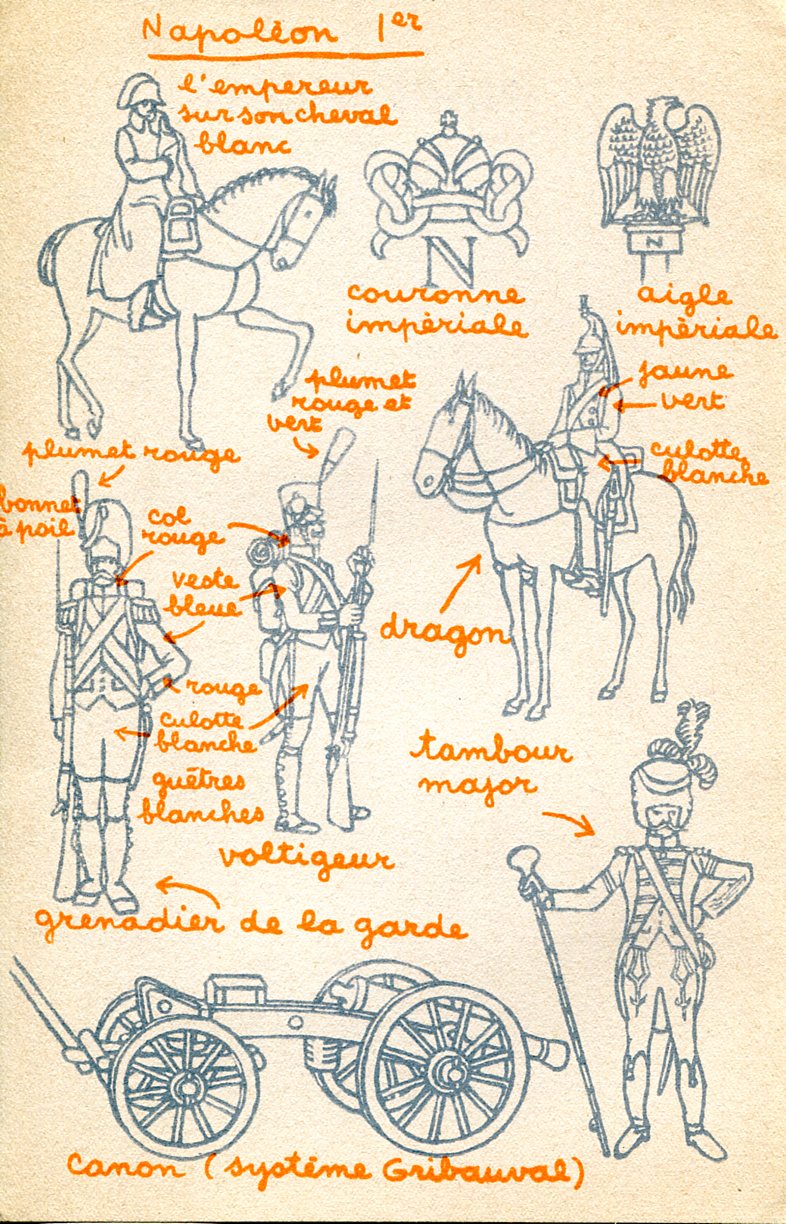 Napoléon 1er
l'empereur
sur son cheval
blanc
N
couronne
impériale
N
aigle
impériale
jaune
vert
culotte
blanche
dragon
plumet
rouge et
vert
plumet rouge
bonnet
à poil
col
rouge
veste
bleue
rouge
culotte
blanche
guêtres
blanches
voltigeur
grenadier de la garde
tambour
major
canon (système Gribauval)